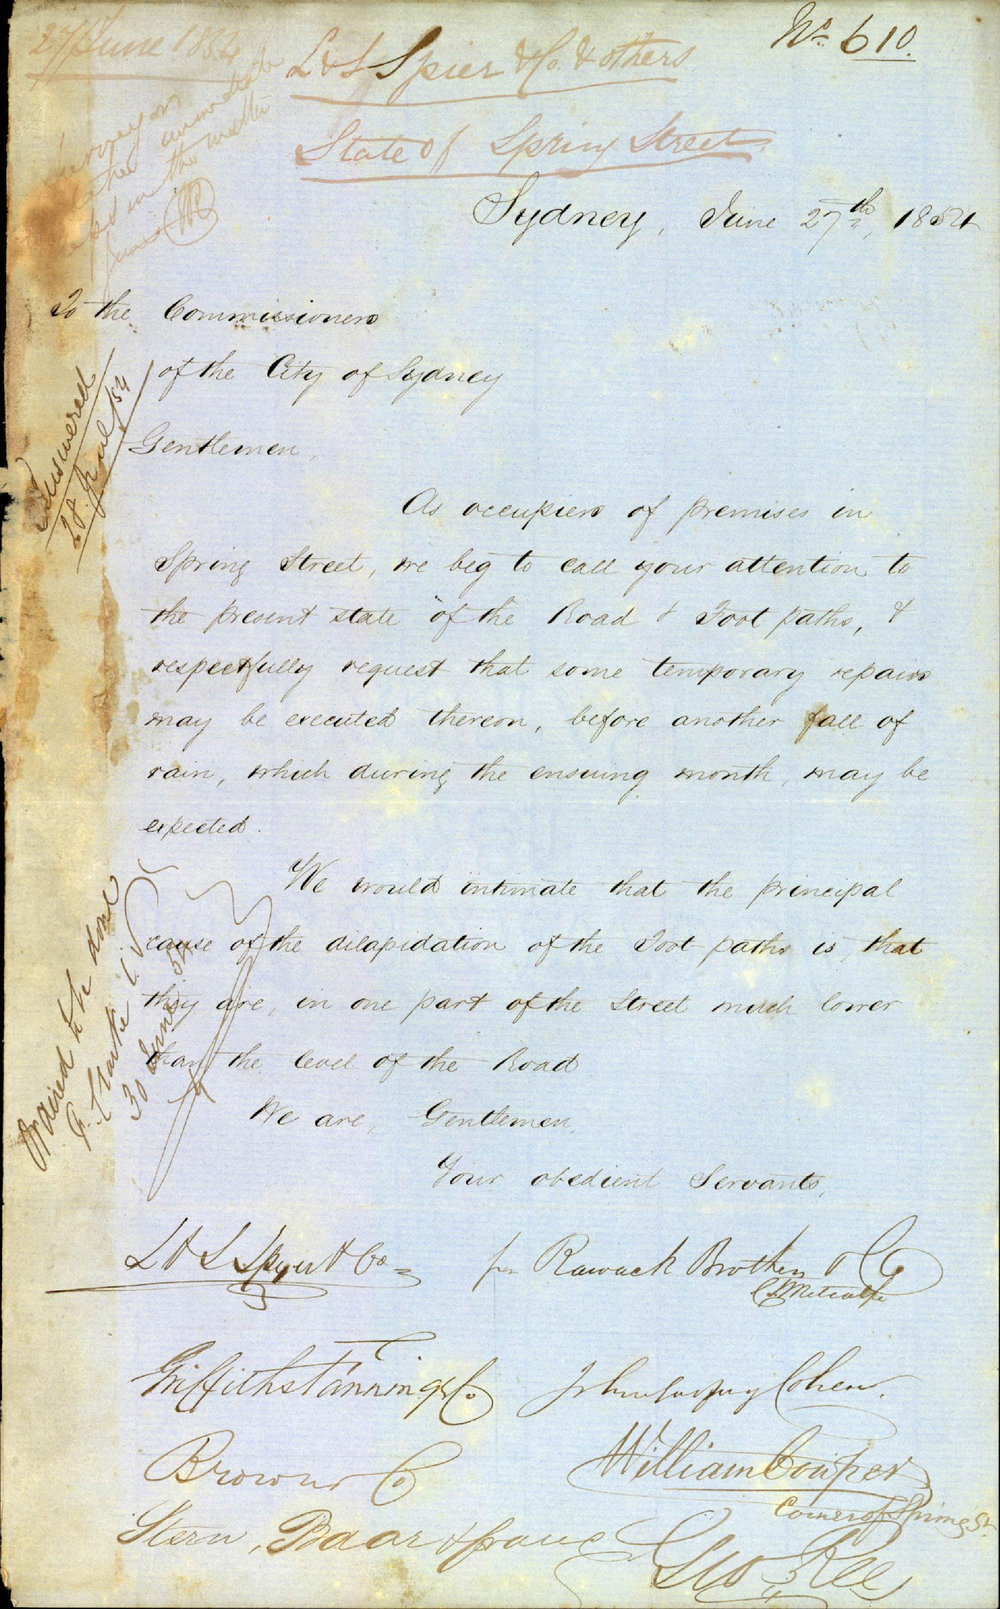 No. 610.
27 June 1854
L & S Spier & Co. & others
State of Spring Street.
Surveyor
in the matter
Sydney, June 27th, 1854
To the Commissioners
of the City of Sydney
Answered
28 June /54
Gentlemen,
As occupiers of premises in
Spring Street, we beg to call your attention to
the present state of the Road & Foot paths, &
respectfully request that some temporary repairs
may be executed thereon, before another fall of
rain, which during the ensuing month, may be
expected.
We would intimate that the principal
cause of the dilapidation of the Foot paths is, that
they are, in one part of the Street much lower
than the level of the Road
Ordered to be done
30 June 54
We are, Gentlemen,
Your obedient Servants,
L & S Spier & Co
for Rawack Brothers & Co
Metcalfe
Griffiths Fanning & Co
Cohen.
Brown & Co
William Cowper
Corner of Spring St.
Stern, Baar &
Geo